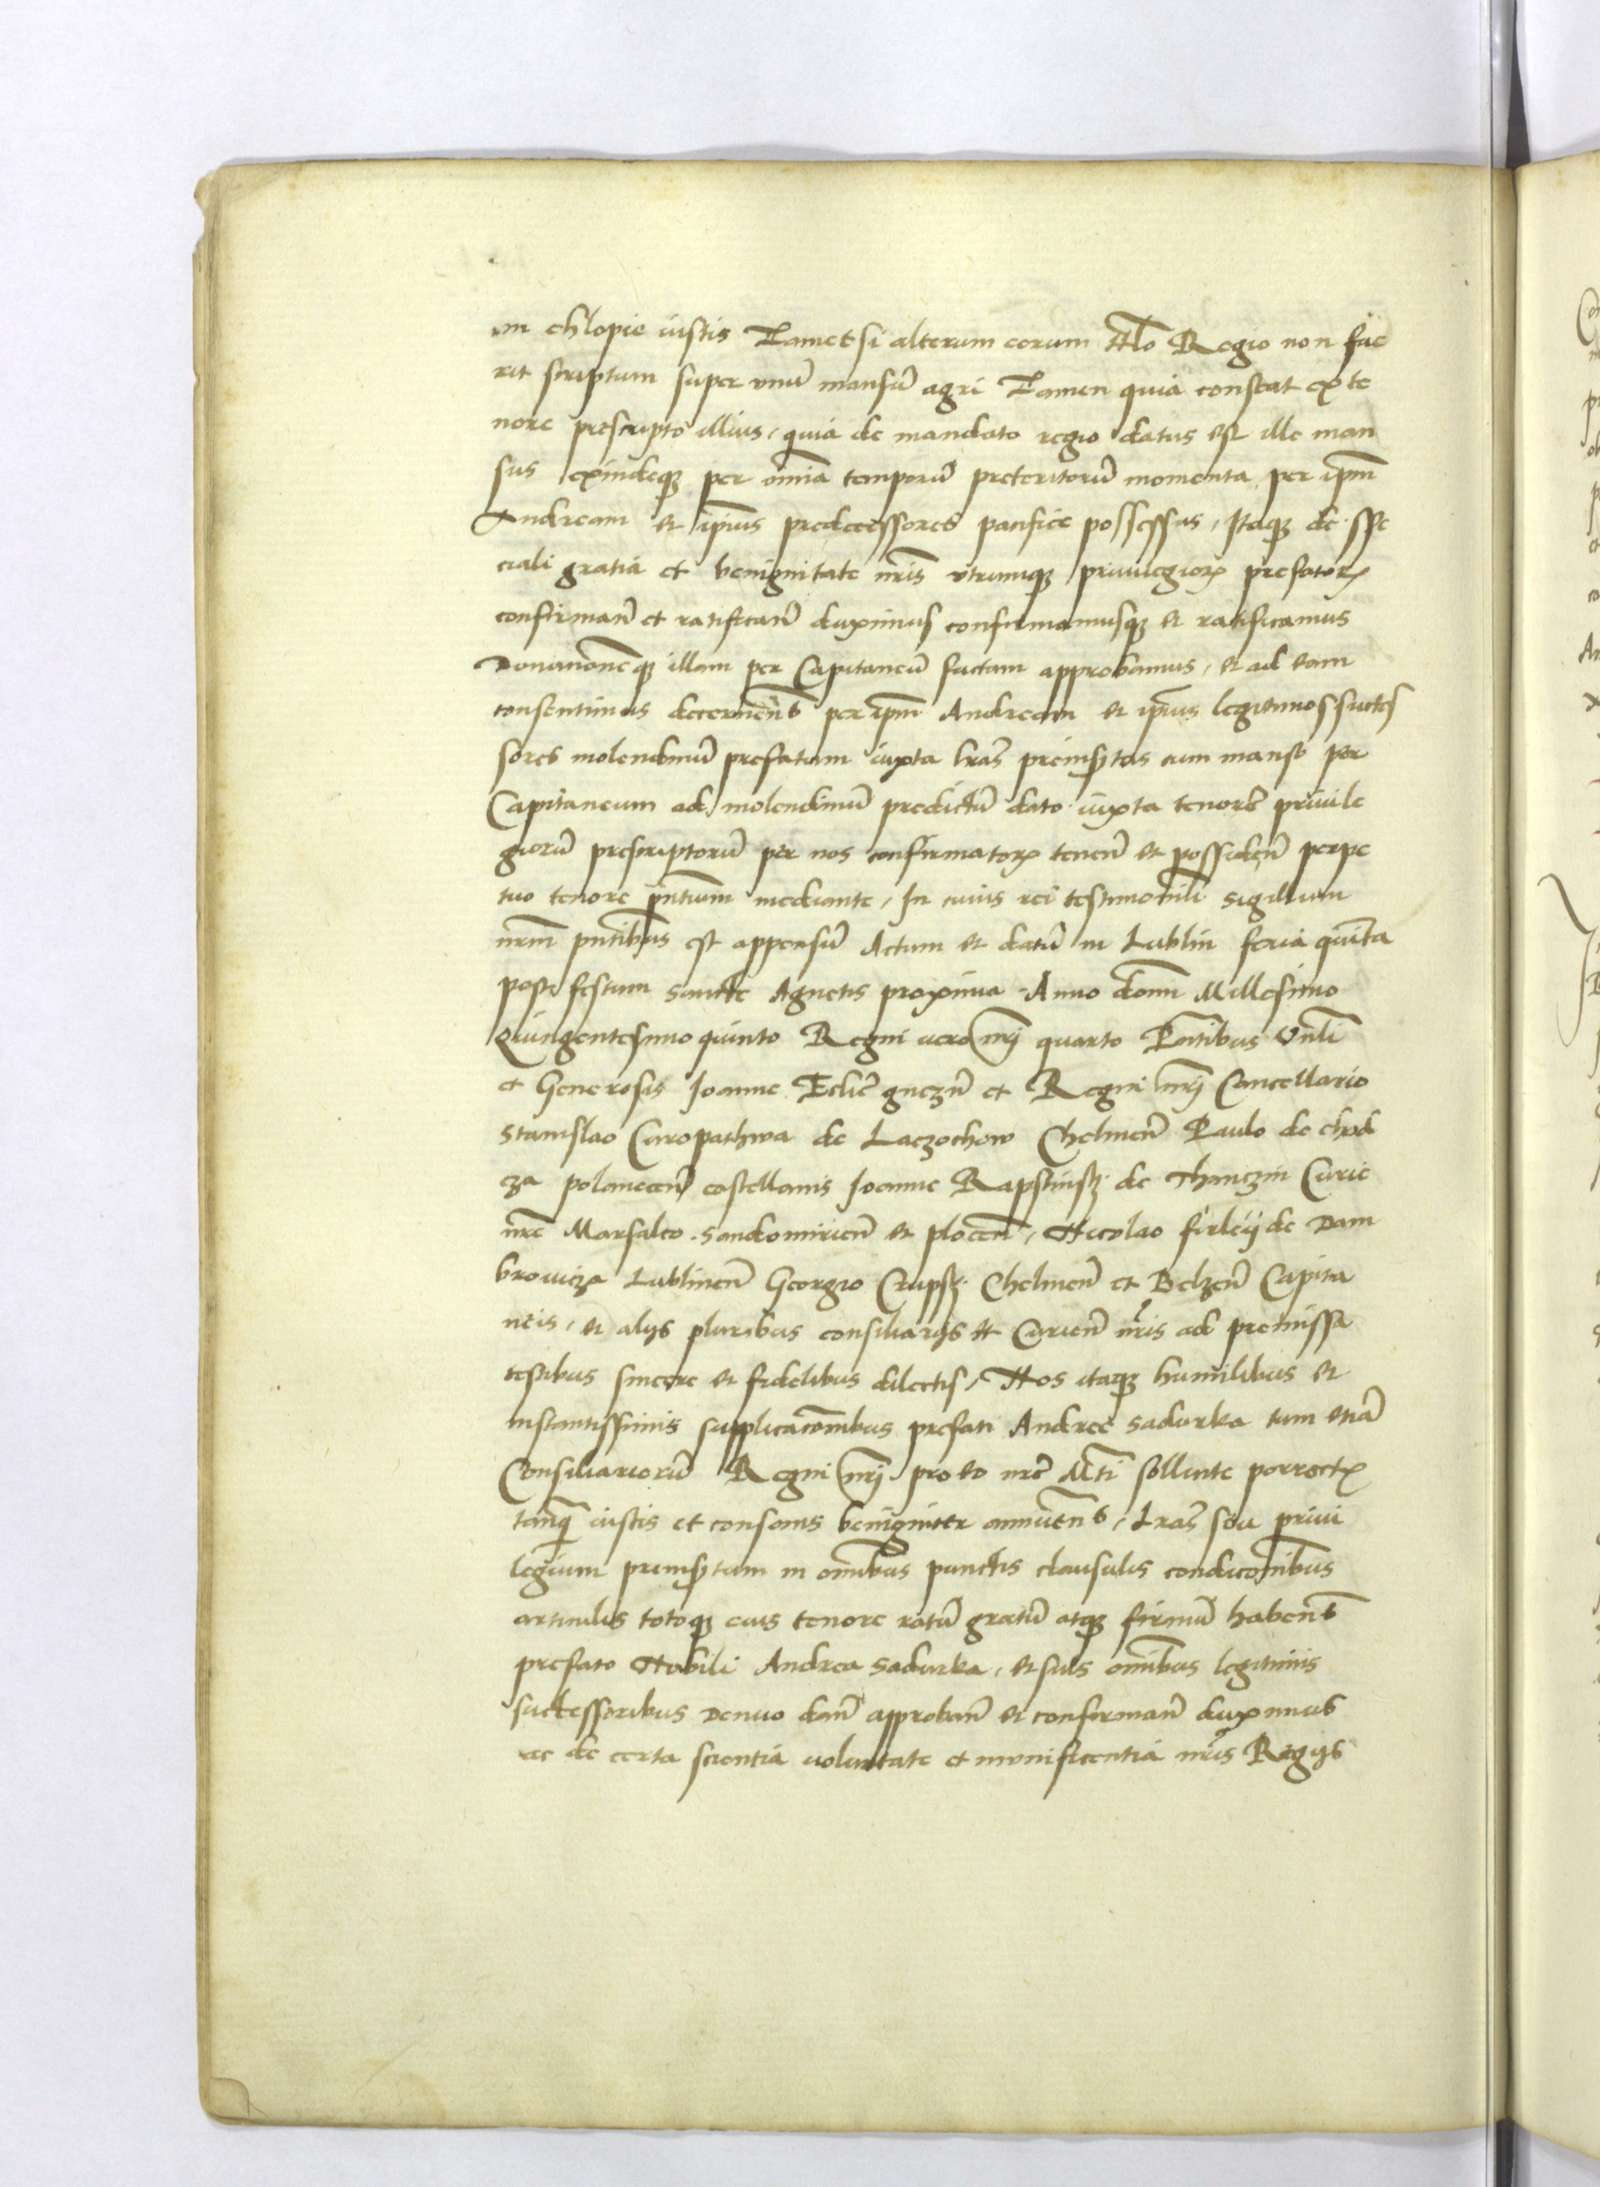 in chlopie iustis Tametsi alterum eorum Nō Regio non fue
rit scriptum super vnū mansū agri Tamen quia constat ex te
nore prescripto illius, quia de mandato regio datus est ille man
sus exindeq; per om̄ia temporū preteritorū momenta per ip̄m
Andream et ip̄ius predecessores pacifice possessus, Itaq; de spe
ciali gratia et benignitate nr̄is vtrumq; priuilegiorꝝ prefatorꝝ
confirman̄ et ratifican̄ duximus confirmamusq; et ratificamus
Donationēq; illam per Capitaneū factam approbamus, et ad eam
consentimus decernen̄t per ip̄m Andream et ip̄ius legitimos succes
sores molendinū prefatum iuxta lr̄as preinsertas cum manso per
Capitaneum ad molendinū predictū dato iuxta tenorē priuile
giorū prescriptorū per nos confirmatorꝝ tenen̄ et possiden̄ perpe
tuo tenore pn̄tium mediante, In cuius rei testimoniū sigillum
nr̄m pn̄tibus est appensū Actum et datū in Lublin feria quinta
post festum sancte Agnetis proxima Anno domi Millesimo
Quingentesimo quinto Regni vero nr̄j quarto Pn̄tibus Vn̄li
et Generosis Ioanne Eclīe gnezn̄ et Regni nr̄j Cancellario
Stanislao Curopathwa de Laczochow Chelmen̄ Paulo de chod
cza polanecen̄ castellanis Ioanne Rapstinsk̄ de Thanczin Curie
nr̄e Marsalco Sandomirien̄ et plocen̄, Nicolao firleij de Dam
browicza Lublinen̄ Georgio Crupsk̄ Chelmen̄ et Belzen̄ Capita
neis, et alijs pluribus consiliarijs et Curien̄ nr̄is ad premissa
testibus sincere et fidelibus dilectis, Nos itaq; humilibus et
instantissimis supplicationibus prefati Andree Sadurka tum etiā
Consiliariorū Regni nr̄j pro eo nr̄e M̄ti sollicite porrectꝭ
tanq̄ iustis et consonis benigniter annuen̄t, Lr̄as seu priui
legium preinsertum in om̄ibus punctis clausulis condicionibus
articulis totoq; eius tenore ratū gratū atq; firmū haben̄t
prefato Nobili Andrea Sadurka, et suis om̄ibus legitimis
successoribus Denuo dan̄ approban̄ et confirman̄ duximus
ac de certa scientia voluntate et munificentia nr̄is Regijs